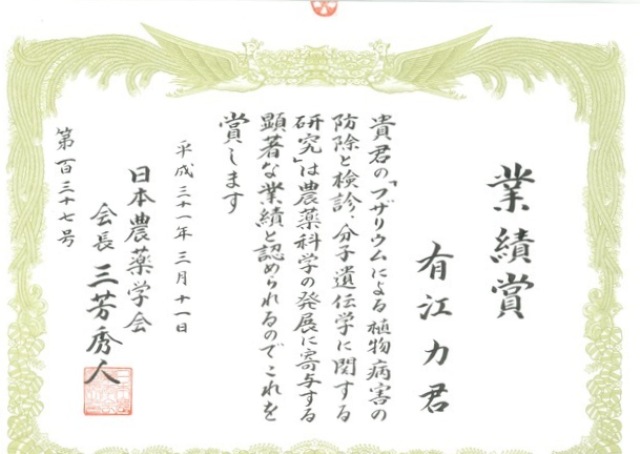 業績賞
有江力君
貴君の「フザリウムによる植物病害の
防除と検診、分子遺伝学に関する
研究」は農薬科学の発展に寄与する
顕著な業績と認められるのでこれを
賞します
平成三十一年三月十一日
日本農薬学会
会長 三芳秀人
第百三十七号